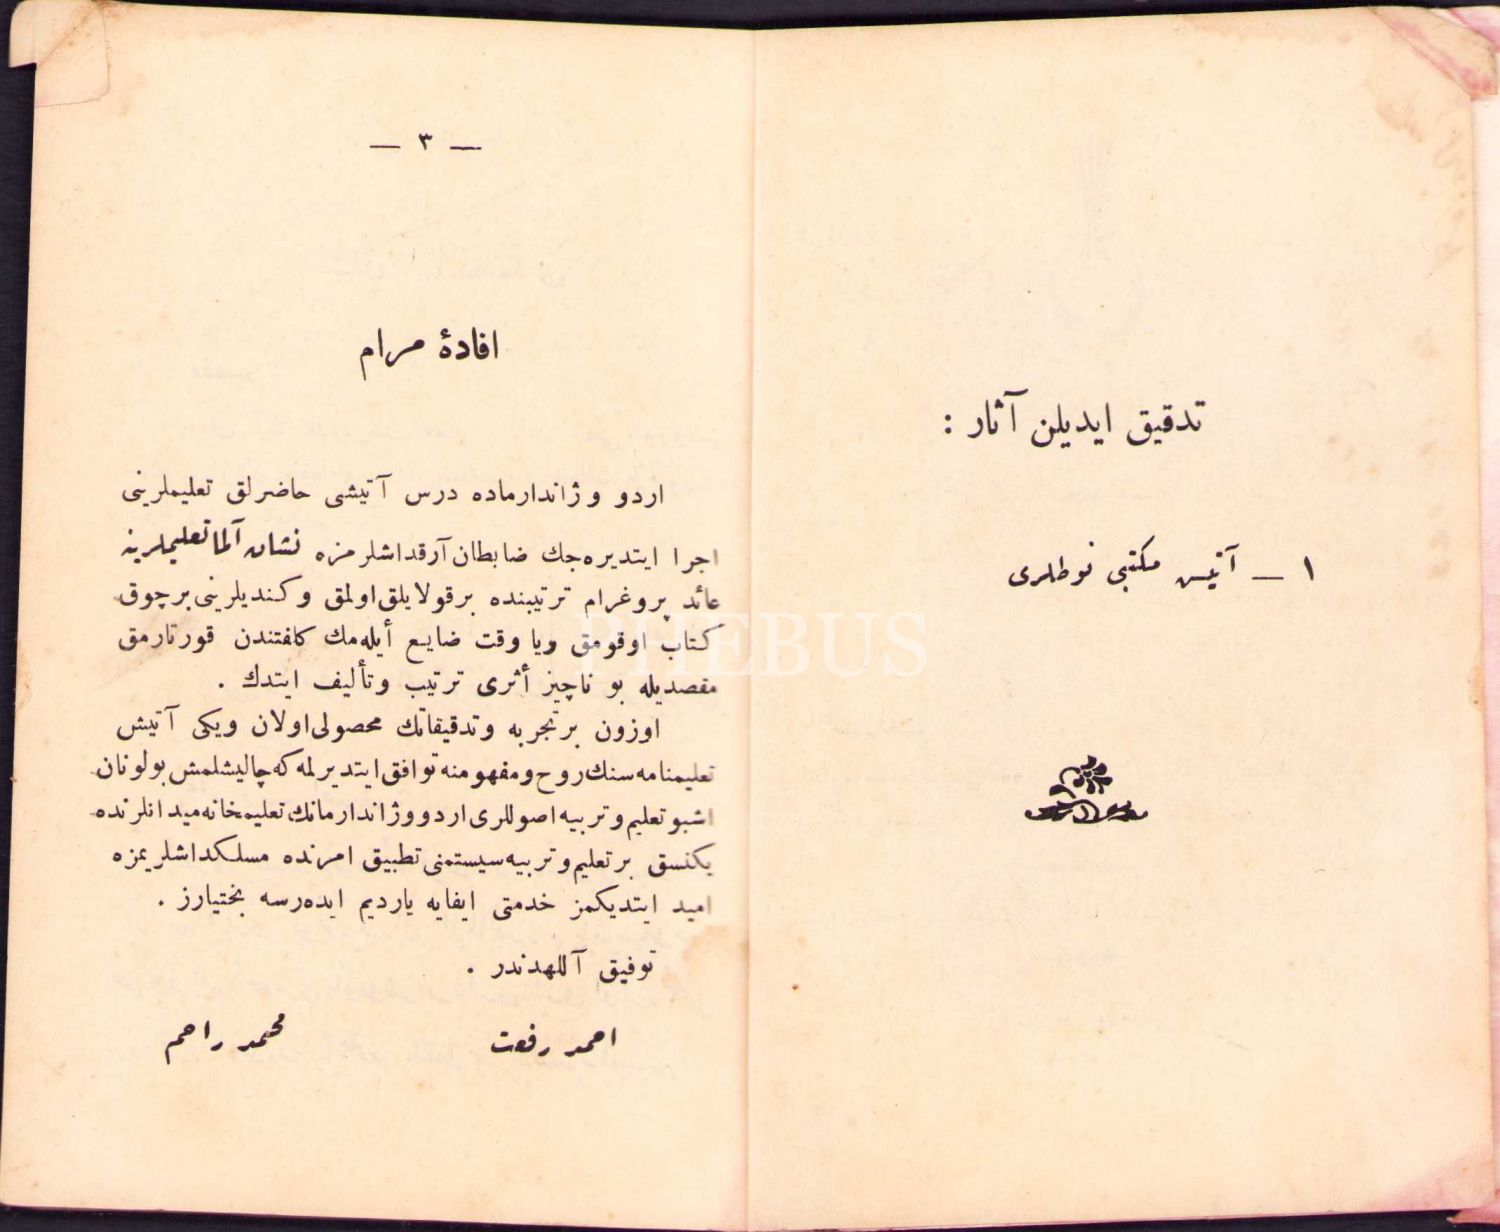 تدقیق ایدیلن آثار :
١ ــ آتیش مکتبی نوطلری
— ٣ —
افادهٔ مرام
اردو و ژاندارماده درس آتیشی حاضرلق تعلیملرینی
اجرا ایتدیره‌جك ضابطان آرقداشلرمزه نشان آلما تعلیملرینه
عائد پروغرام ترتیبنده برقولایلق اولمق و کندیلرینی برچوق
کتاب اوقومق ویا وقت ضایع أیله‌مك کلفتندن قورتارمق
مقصدیله بو ناچیز أثری ترتیب و تألیف ایتدك .
اوزون بر تجربه و تدقیقاتك محصولی اولان ویکی آتیش
تعلیمنامه‌سنك روح و مفهومنه توافق ایتدیرلمه‌که چالیشلمش بولونان
اشبو تعلیم و تربیه اصوللری اردو و ژاندارمانك تعلیمخانه میدانلرنده
یکنسق بر تعلیم و تربیه سیستمنی تطبیق امرنده مسلکداشلریمزه
امید ایتدیکمز خدمتی ایفایه یاردیم ایده‌رسه بختیارز .
توفیق آللهدندر .
احمد رفعت
محمد راحم
PHEBUS